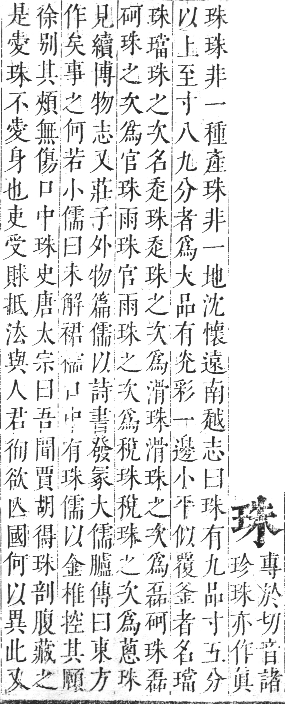 珠
專於切音諸
珍珠亦作眞
珠珠非一種產珠非一地沈懷遠南越志曰珠有九品寸五分
以上至寸八九分者爲大品有光彩一邊小平似覆釜者名璫
珠璫珠之次名走珠走珠之次爲滑珠滑珠之次爲磊砢珠磊
砢珠之次爲官珠雨珠官雨珠之次爲稅珠稅珠之次爲蔥珠
見續博物志又莊子外物篇儒以詩書發冢大儒臚傳曰東方
作矣事之何若小儒曰未解裙襦口中有珠儒以金椎控其頤
徐別其頰無傷口中珠史唐太宗曰吾聞賈胡得珠剖腹藏之
是愛珠不愛身也吏受賕抵法與人君徇欲亾國何以異此又